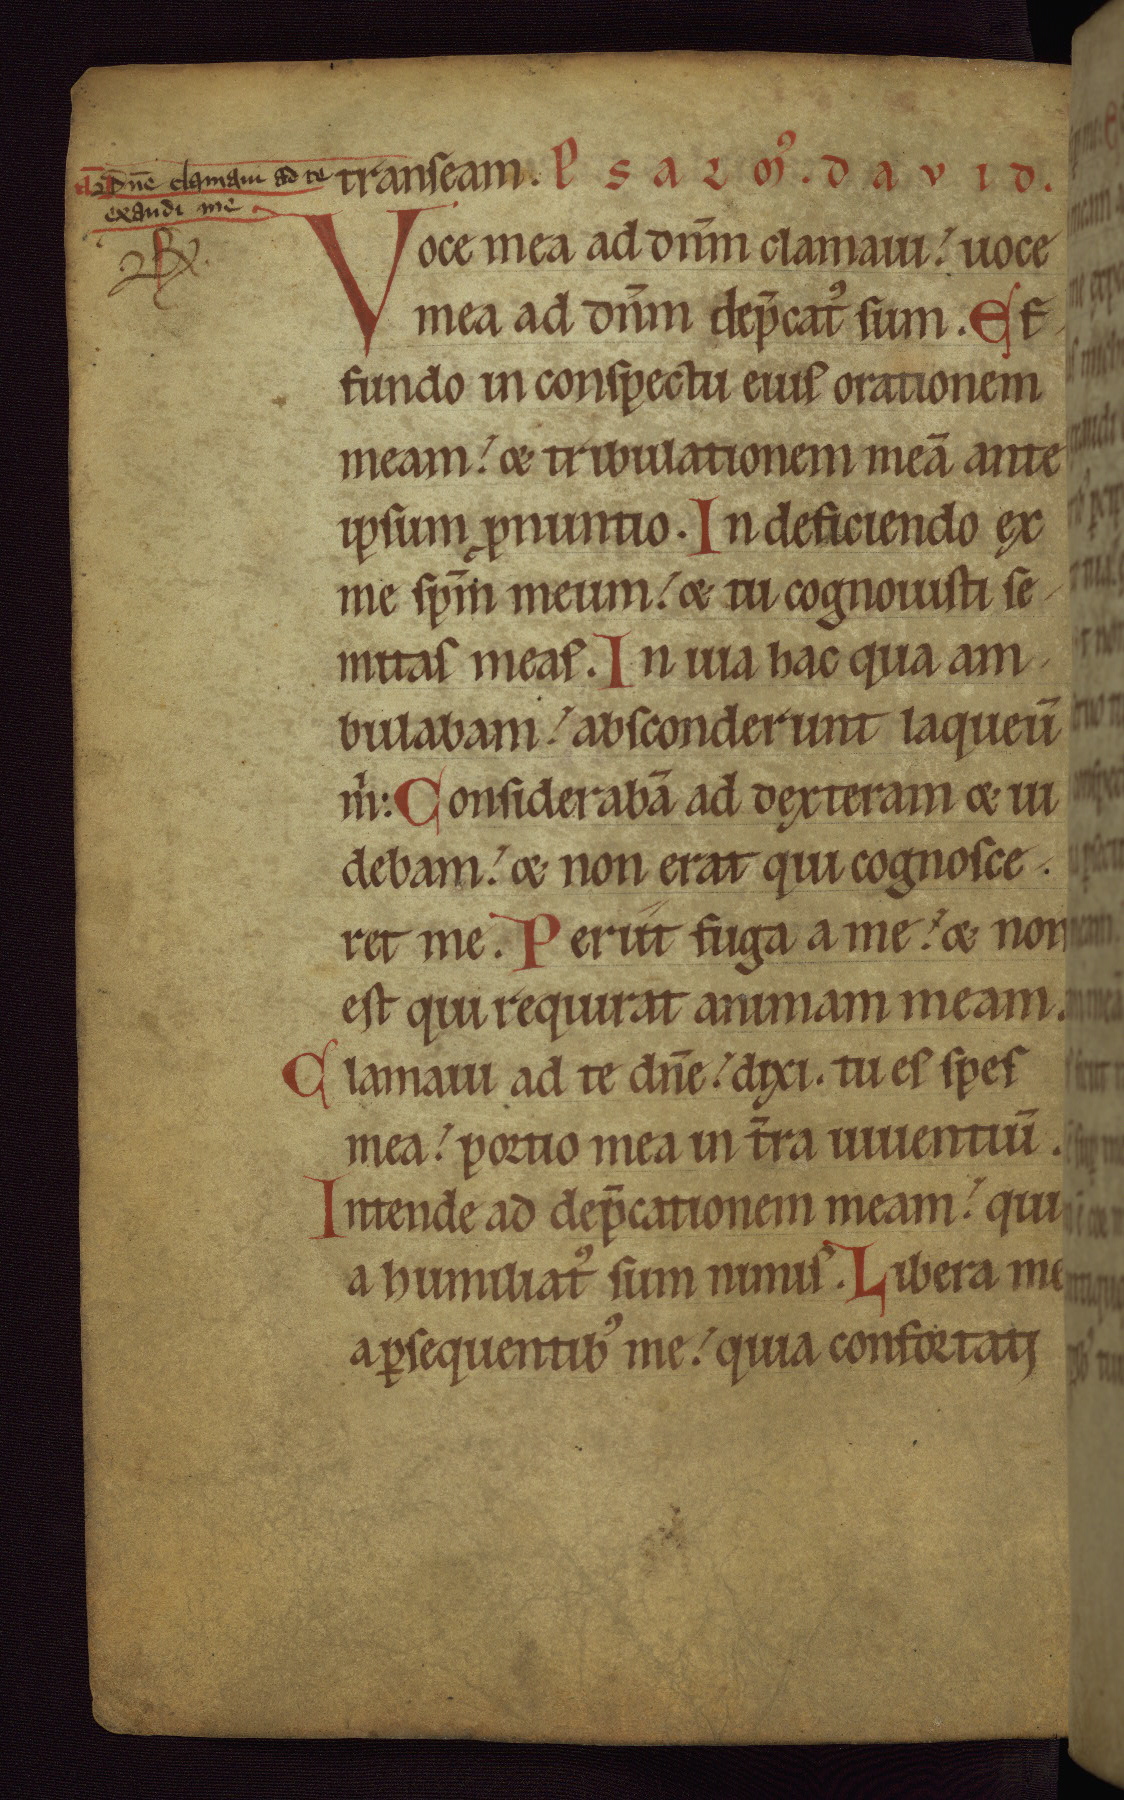 Dñe clamaui ad te
exaudi me
transeam. PSALMꝰ. DAVID.
Voce mea ad dñm clamaui: uoce
mea ad dñm dep̄catꝰ sum. Ef
fundo in conspectu eius orationem
meam: & tribulationem meā ante
ipsum ꝓnuntio. In deficiendo ex
me sp̄m meum: & tu cognouisti se
mitas meas. In uia hac qua am
bulabam: absconderunt laqueū
m̍: Considerabā ad dexteram & ui
debam: & non erat qui cognosce
ret me. Periit fuga a me: & non
est qui requirat animam meam.
Clamaui ad te dñe: dixi. tu es spes
mea: portio mea in t̄ra uiuentiū.
Intende ad dep̄cationem meam: qui
a humiliatꝰ sum nimis. Libera me
a ꝑsequentibꝰ me: quia confortati